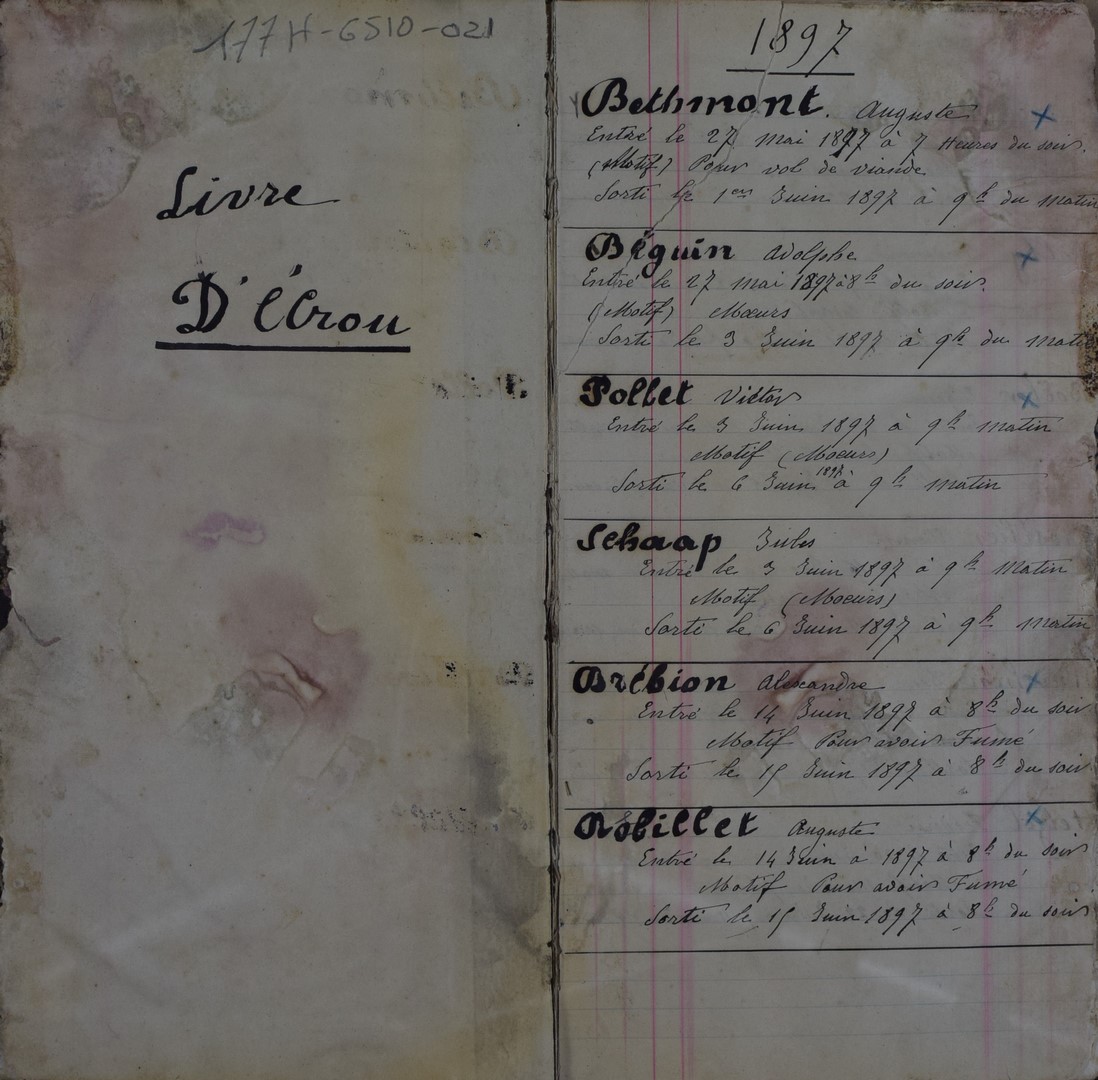 177H-6510-021
Livre
D'écrou
1897
Bethmont. Auguste
Entré le 27 mai 1897 à 7 Heures du soir.
(Motif) Pour vol de viande
Sorti le 1er Juin 1897 à 9h du matin
Béguin Adolphe
Entré le 27 mai 1897 à 8h du soir.
(Motif) Mœurs
Sorti le 3 Juin 1897 à 9h du matin
Pollet Victor
Entré le 3 Juin 1897 à 9h matin
Motif (Mœurs)
Sorti le 6 Juin 1897 à 9h matin
Schaap Jules
Entré le 3 Juin 1897 à 9h Matin
Motif (Mœurs)
Sorti le 6 Juin 1897 à 9h Matin
Brébion Alexandre
Entré le 14 Juin 1897 à 8h du soir
Motif Pour avoir Fumé
Sorti le 15 Juin 1897 à 8h du soir
Robillet Auguste
Entré le 14 Juin à 1897 à 8h du soir
Motif Pour avoir Fumé
Sorti le 15 Juin 1897 à 8h du soir